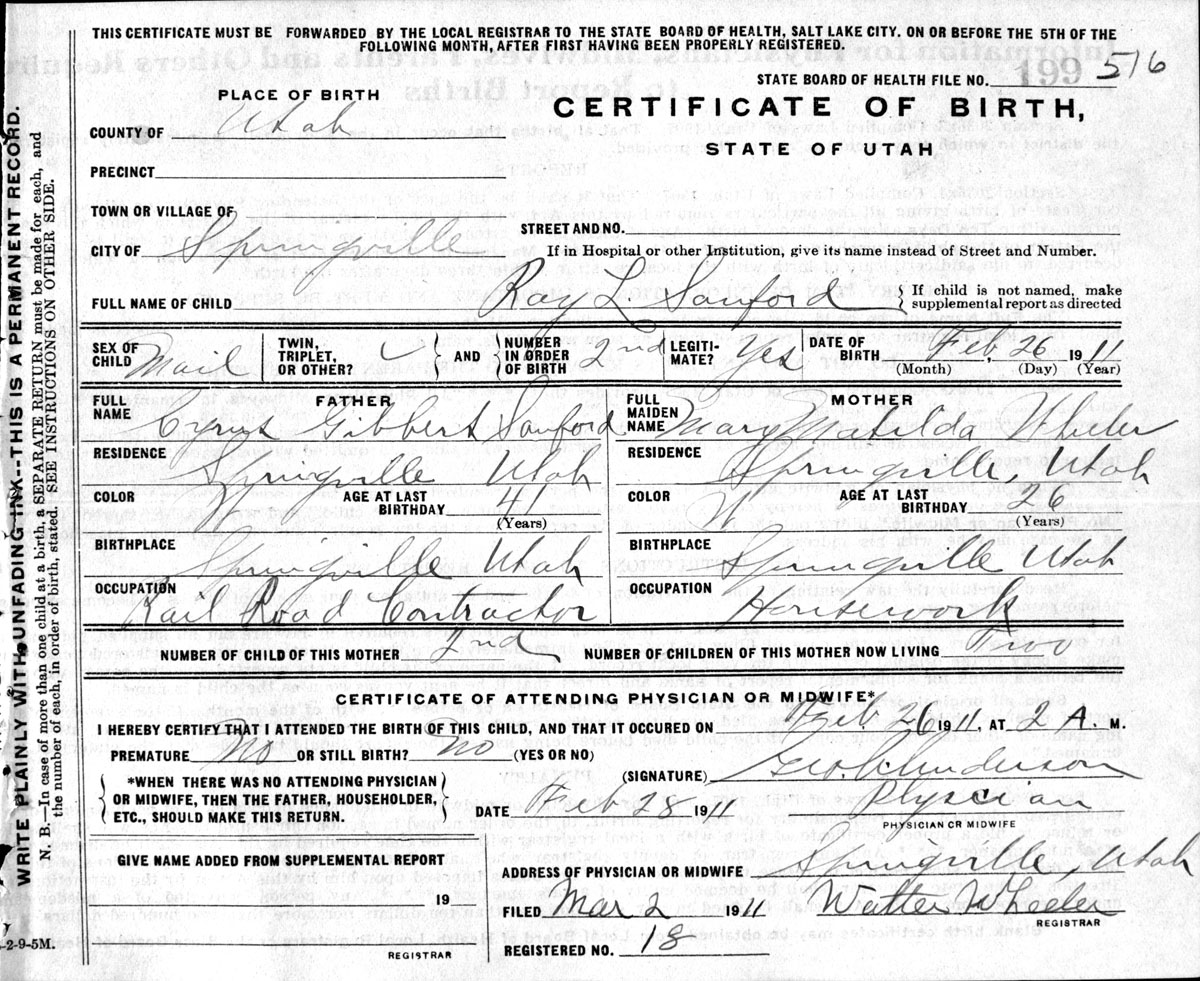 THIS CERTIFICATE MUST BE FORWARDED BY THE LOCAL REGISTRAR TO THE STATE BOARD OF HEALTH, SALT LAKE CITY. ON OR BEFORE THE 5TH OF THE
FOLLOWING MONTH, AFTER FIRST HAVING BEEN PROPERLY REGISTERED.
STATE BOARD OF HEALTH FILE NO. 199 516
PLACE OF BIRTH
CERTIFICATE OF BIRTH,
STATE OF UTAH
COUNTY OF Utah
PRECINCT
TOWN OR VILLAGE OF
STREET AND NO.
CITY OF Springville
If in Hospital or other Institution, give its name instead of Street and Number.
FULL NAME OF CHILD Ray L Sanford
If child is not named, make
supplemental report as directed
SEX OF CHILD Mail
TWIN, TRIPLET, OR OTHER?
AND
NUMBER IN ORDER OF BIRTH 2nd
LEGITI-MATE? yes
DATE OF BIRTH Feb 26 1911
(Month) (Day) (Year)
FATHER
FULL NAME Cyrus Gibbert Sanford
RESIDENCE Springville Utah
COLOR
AGE AT LAST BIRTHDAY
(Years)
BIRTHPLACE Springville Utah
OCCUPATION Rail Road Contractor
MOTHER
FULL MAIDEN NAME Mary Matilda Wheeler
RESIDENCE Springville, Utah
COLOR W
AGE AT LAST BIRTHDAY 26
(Years)
BIRTHPLACE Springville Utah
OCCUPATION Housework
NUMBER OF CHILD OF THIS MOTHER 2nd
NUMBER OF CHILDREN OF THIS MOTHER NOW LIVING Two
CERTIFICATE OF ATTENDING PHYSICIAN OR MIDWIFE*
I HEREBY CERTIFY THAT I ATTENDED THE BIRTH OF THIS CHILD, AND THAT IT OCCURED ON Feb 26 1911. AT 2 A. M.
PREMATURE No OR STILL BIRTH? No (YES OR NO)
*WHEN THERE WAS NO ATTENDING PHYSICIAN
OR MIDWIFE, THEN THE FATHER, HOUSEHOLDER,
ETC., SHOULD MAKE THIS RETURN.
(SIGNATURE) Geo. Anderson
DATE Feb 28 1911 Plyscian
PHYSICIAN OR MIDWIFE
GIVE NAME ADDED FROM SUPPLEMENTAL REPORT
19
REGISTRAR
ADDRESS OF PHYSICIAN OR MIDWIFE Springville, Utah
FILED Mar 2 1911 Walter Wheeler
REGISTRAR
REGISTERED NO. 18
-2-9-5M.
WRITE PLAINLY WITH UNFADING INK--THIS IS A PERMANENT RECORD.
N. B.—In case of more than one child at a birth, a SEPARATE RETURN must be made for each, and
the number of each, in order of birth, stated. SEE INSTRUCTIONS ON OTHER SIDE.